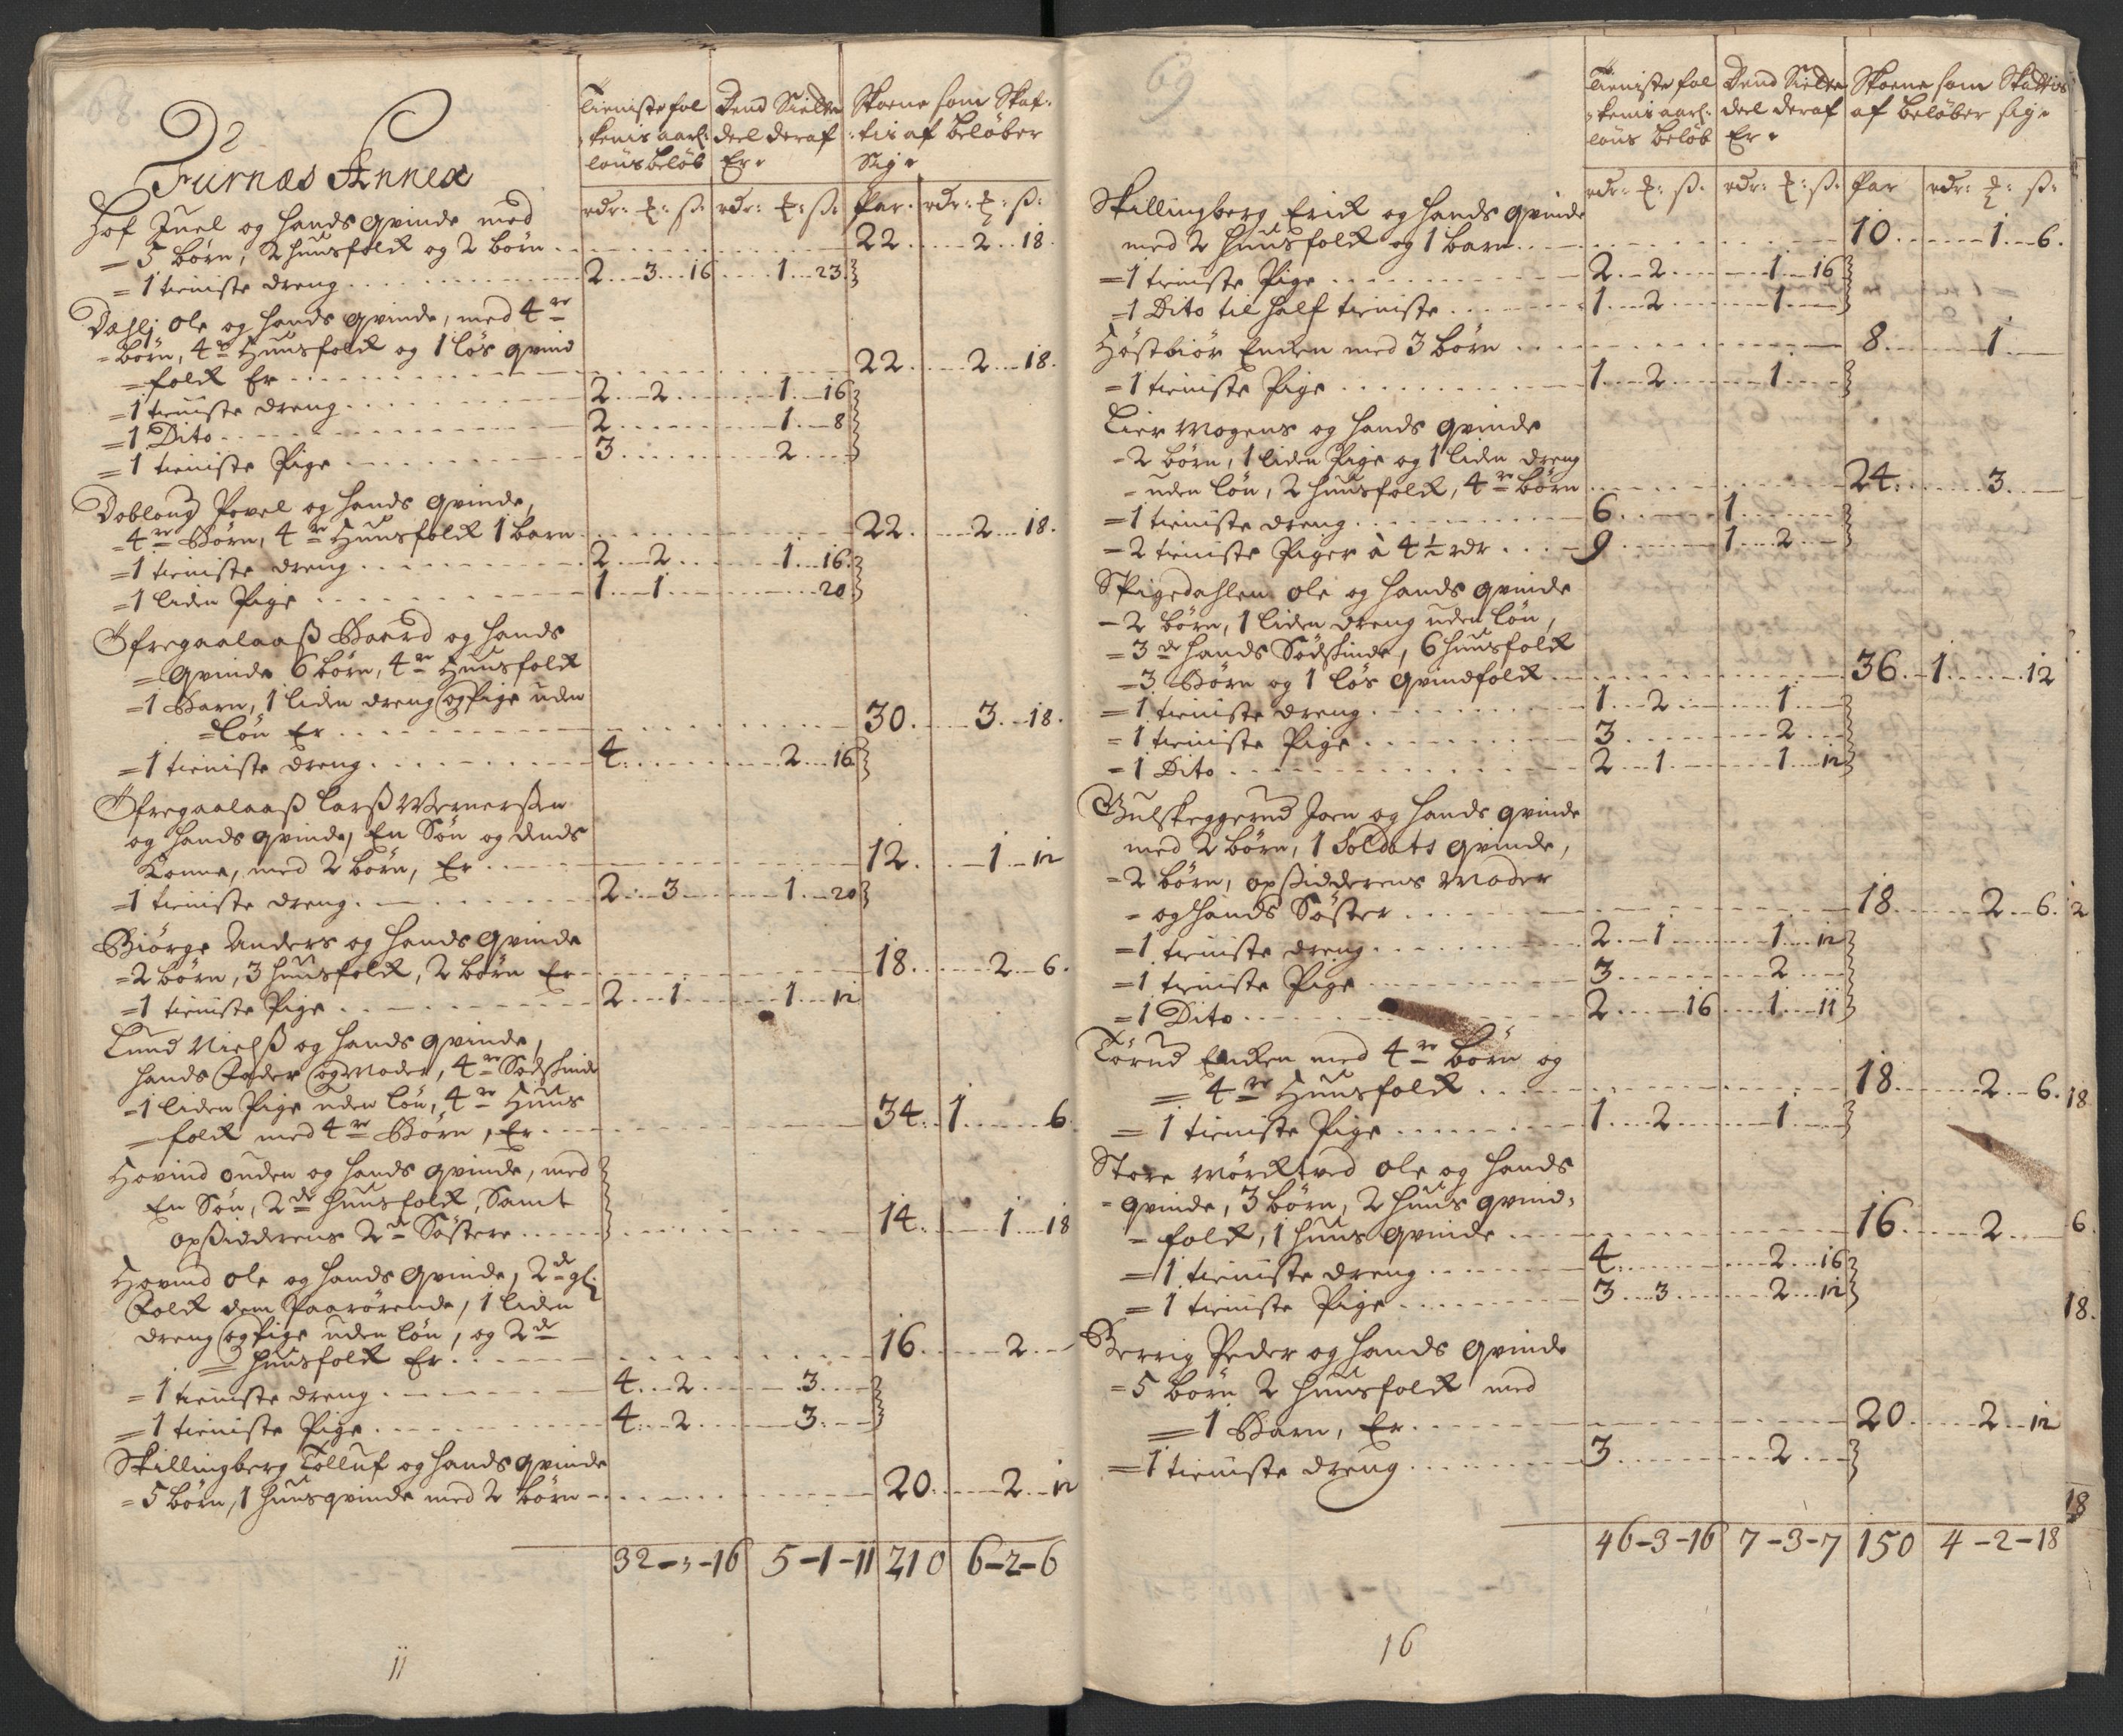 Furnæs Annex
Tieniste fol Dend Siette Skoene som Skat:
:kenis aarl: deel deraf :tis af beløber
løns beløb Er Sig
rdr: ß: rdr: ß: Par. rdr: ß:
Hof Juel og hands qvinde med
= 5 børn, 2 huusfolck og 2 børn 22 2 18
= 1 tieniste dreng 2 3 16 1 23
Dahlj Ole og hands qvinde, med 4re
= børn, 4re Huusfolck og 1 løs qvind
= folck Er 22 2 18
= 1 tieniste dreng 2 2 1 16
= 1 Dito 2 1 8
= 1 tieniste Pige 3 2
Doblong Povel og hands qvinde,
= 4re Børn, 4re Huusfolck 1 barn 22 2 18
= 1 tieniste dreng 2 2 1 16
= 1 liden Pige 1 1 20
Øfregaalaaß Baard og hands
= qvinde 6 børn, 4re Huusfolck
= 1 Barn, 1 liden dreng og Pige uden
= løn Er 30 3 18
= 1 tieniste dreng 4 2 16
Øfregaalaaß Larß Wernersen
og hands qvinde, En Søn og dends
Konne, med 2 børn, Er 12 1 12
= 1 tieniste dreng 2 3 1 20
Biørge Anders og hands qvinde
= 2 børn, 3 huusfolck, 2 børn Er 18 2 6
= 1 tieniste Pige 2 1 1 12
Lund Nielß og hands qvinde,
hands Fader og Moder, 4re Sødskinde
= 1 liden Pige uden løn, 4re Huus
= folck med 4re Børn, Er 34 1 6
Hovind Ouden og hands qvinde, med
En Søn, 2de huusfolck, Samt
opßidderens 2de Søstere 14 1 18
Hovind Ole og hands qvinde, 2de gl:
Folck dem paarørende, 1 liden
dreng og Pige uden løn, og 2de
= huusfolck Er 16 2
= 1 tieniste dreng 4 2 3
= 1 tieniste Pige 4 2 3
Skillingberg Tolluf og hands qvinde
= 5 børn, 1 huusqvinde med 2 børn 20 2 12
32-3-16 5-1-11 210 6-2-6
11
69
Tieniste fol Dend Siette Skoene som Skattis
:kenis aarl: deel deraf af beløber sig
løns beløb Er
rdr: ß: rdr: ß: Par rdr: ß:
Skillingberg Erick og hands qvinde
med 2 huusfolck og 1 barn 10 1 6
= 1 tieniste Pige 2 2 1 16
= 1 Dito til half tieniste 1 2 1
Høstbiør Encken med 3 børn 8 1
= 1 tieniste Pige 1 2 1
Lier Mogens og hands qvinde
= 2 børn, 1 liden Pige og 1 liden dreng
= uden løn, 2 huusfolck, 4re børn 24 3
= 1 tieniste dreng 6 1
= 2 tieniste Piger à 4½ rdr 9 1 2
Skigedahlen Ole og hands qvinde
= 2 børn, 1 liden dreng uden løn,
= 3de hands Sødskinde, 6 huusfolck
= 3 Børn og 1 løs qvindfolck 36 1 12
= 1 tieniste dreng 1 2 1
= 1 tieniste Pige 3 2
= 1 Dito 2 1 1 12
Gulskeggerud Joen og hands qvinde
med 2 børn, 1 Soldats qvinde,
= 2 børn, opßidderens Moder
= og hands Søster 18 2 6
= 1 tieniste dreng 2 1 1 12
= 1 tieniste Pige 3 2
= 1 Dito 2 16 1 11
Tørud Encken med 4re børn og
= 4re Huusfolck 18 2 6
= 1 tieniste Pige 1 2 1
Store Mørcktved Ole og hands
= qvinde, 3 børn, 2 huus qvind:
= folck, 1 huus qvinde 16 2
= 1 tieniste dreng 4 2 16
= 1 tieniste Pige 3 3 2 12
Berrig Peder og hands qvinde
= 5 børn 2 huusfolck med
= 1 Barn, Er 20 2 12
= 1 tieniste dreng 3 2
46-3-16 7-3-7 150 4-2-18
16